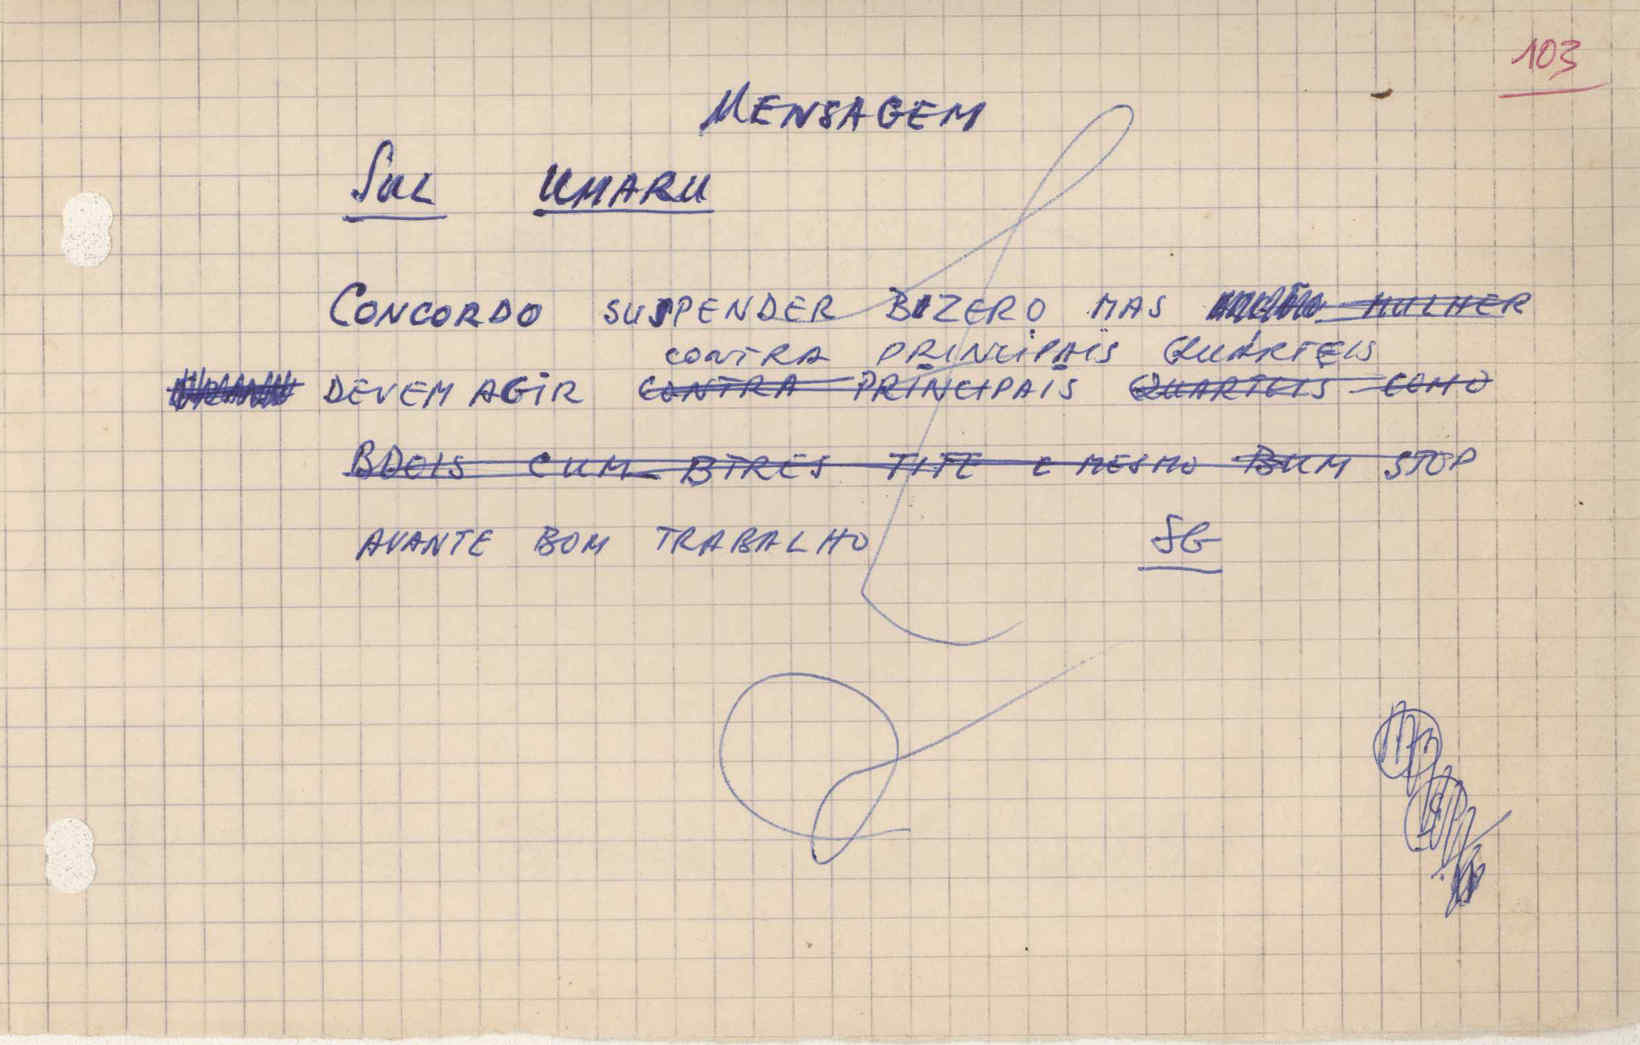 103
MENSAGEM
SUL UMARU
CONCORDO SUSPENDER BZERO MAS MULHER
CONTRA PRINCIPAIS QUARTEIS
DEVEM AGIR CONTRA PRINCIPAIS QUARTEIS COMO
BDOIS CUM BTRES TITE E MESMO BUM STOP
AVANTE BOM TRABALHO SG